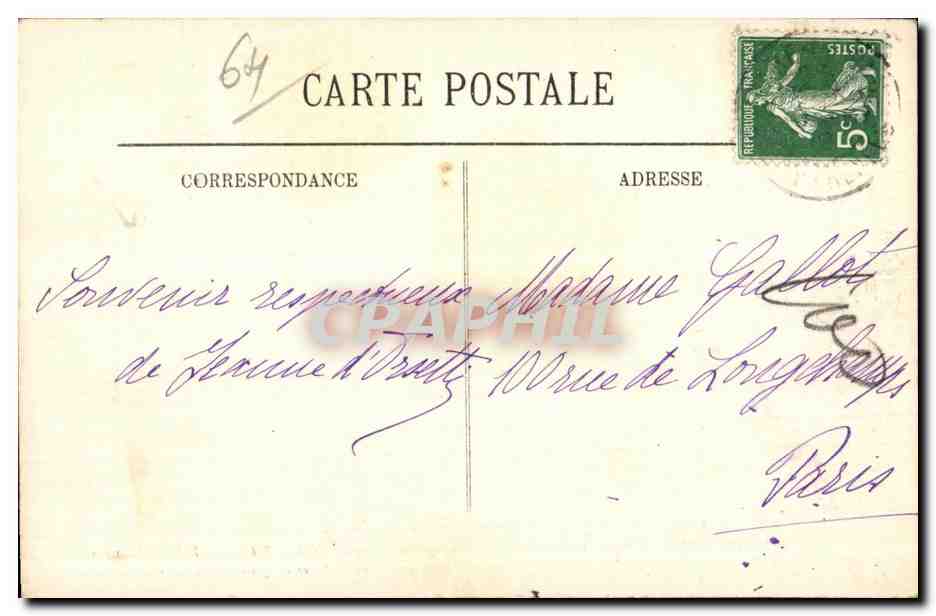 64
CARTE POSTALE
REPUBLIQUE FRANÇAISE
POSTES
5c
CORRESPONDANCE
ADRESSE
Souvenir respectueux
de Jeanne d'Orsetti
Madame Gallot
100 rue de Longchamps
Paris
CPAPHIL